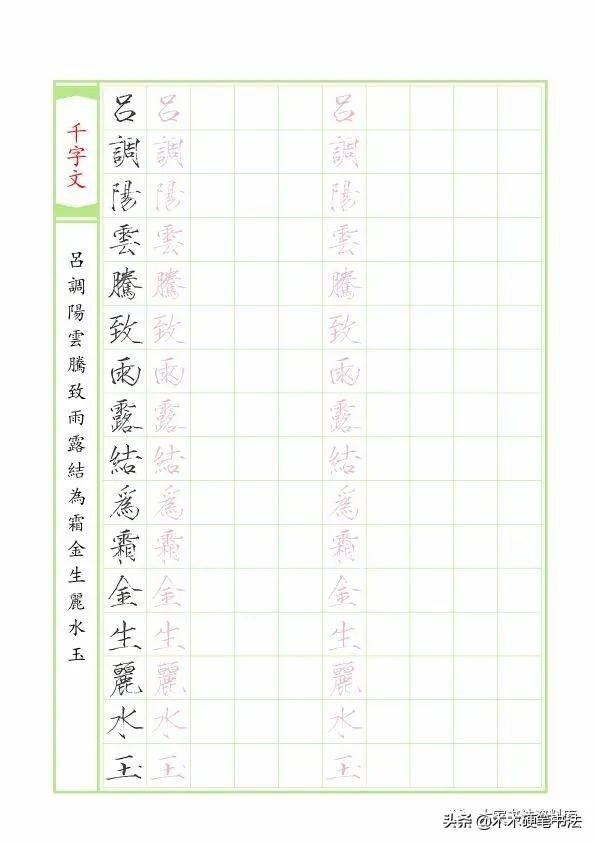 千字文
呂調陽雲騰致雨露結為霜金生麗水玉
呂調陽雲騰致雨露結爲霜金生麗水玉
呂調陽雲騰致雨露結爲霜金生麗水玉
呂調陽雲騰致雨露結爲霜金生麗水玉
头条 @木木硬笔书法